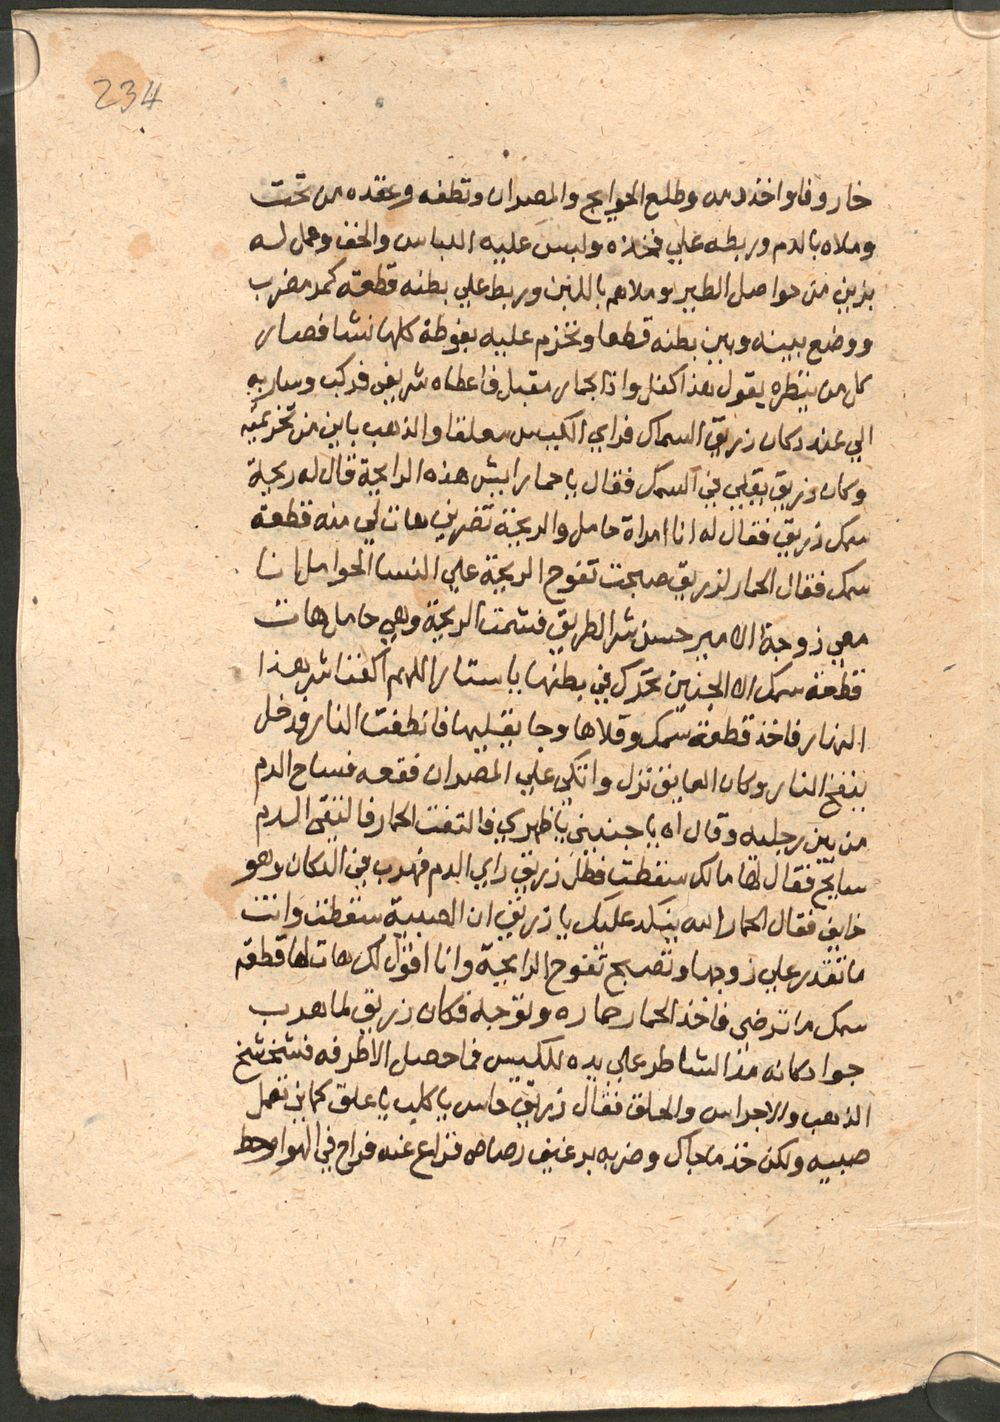 234
خاروفا واخذ دمه وطلع الحوايج والمصران ونظفه وعقده من تحت
وملاه بالدم وربطه علي فخذه ولبس عليه اللباس والخف وعمل له
بزين من حواصل الطير وملاهم باللبن وربط علي بطنه قطعة كمد مضرب
ووضع بينه وبين بطنه قطعا وتحزم عليه بفوطة كلها نشا فصار
كل من ينظره يقول هذا كفل واذا بحمار مقبل فاعطاه شريفي فركب وسار به
الي عند دكان زريق السماك فراي الكيس معلقا والذهب باين من تخريمه
وكان زريق يقلي في السمك فقال يا حمار ايش هذه الرايحة قال له ريحة
سمك زريق فقال له انا امراة حامل والريحة تضرني هات لي منه قطعة
سمك فقال الحمار لزريق صبحت تفوح الريحة علي النسا الحوامل انا
معي زوجة الامير حسن شر الطريق فشمت الريحة وهي حامل هات
قطعة سمك الا الجنين تحرك في بطنها يا ستار اللهم اكفنا شر هذا
النهار فاخذ قطعة سمك وقلاها وجا يقليها فانطفت النار فدخل
ينفخ النار وكان العايق نزل واتكى علي المصران فقعه فساح الدم
من بين رجليه وقال اه يا جنيني يا ظهري فالتفت الحمار فالتقى الدم
سايح فقال لها مالك سقطت فطل زريق راي الدم فهرب في الدكان وهو
خايف فقال الحمار الله ينكد عليك يا زريق ان الصبية سقطت وانت
ما تقدر علي زوجها وتصبح تفوح الرايحة وانا اقول لك هات لها قطعة
سمك ما ترضى فاخذ الحمار حماره وتوجه فكان زريق لما هرب
جوا دكانه مد الشاطر علي يده للكيس فما حصل الا طرفه فشخشخ
الذهب والاجراس والحلق فقال زريق حاس يا كلب يا علق كمان تعمل
صبيه ولكن خذ ما جاك وضربه برغيف رصاص فزاغ عنه فراح في الهوا وحط